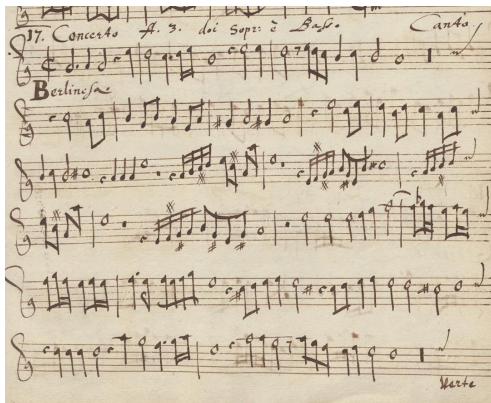 17. Concerto A. 3. doi Sopr: è Bass. Canto
Berlinesa
Verte